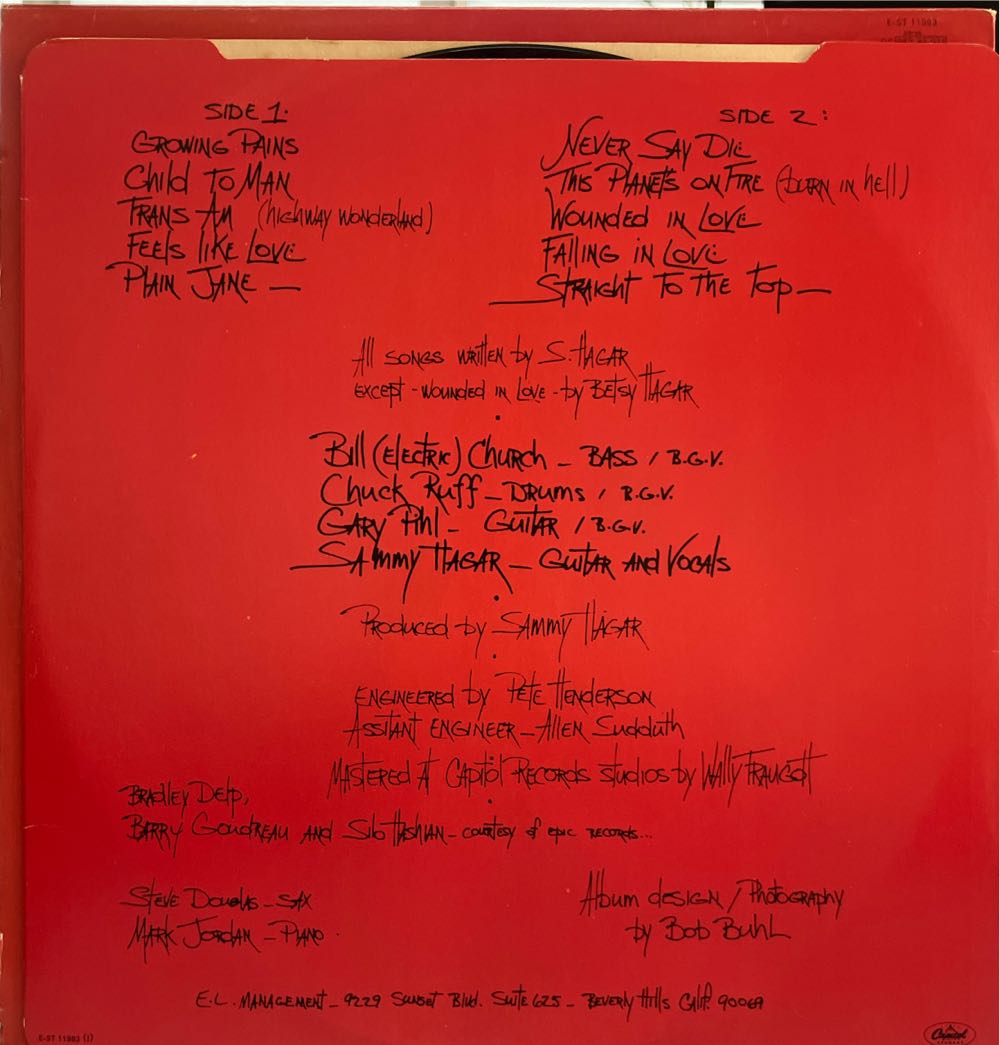 E-ST 11983
SIDE 1:
GROWING PAINS
Child TO MAN
TRANS AM (highway wonderland)
FEELS LIKE LOVE
PLAIN JANE —
SIDE 2:
NEVER SAY DIE
THIS PLANET'S ON FIRE (BURN IN hell)
WOUNDED IN LOVE
FALLING IN LOVE
STRAIGHT TO THE TOP —
All SONGS WRITTEN by S. HAGAR
EXCEPT - WOUNDED IN LOVE - by BETSY HAGAR
Bill (ElECTRIC) Church — BASS / B.G.V.
Chuck Ruff — DRUMS / B.G.V.
GARY Pihl — GUITAR / B.G.V.
SAMMY HAGAR — GUITAR AND VOCALS
PRODUCED by SAMMY HAGAR
ENGINEERED by PETE HENDERSON
ASSITANT ENGINEER — AllEN Sudduth
MASTERED AT CAPITOL RECORDS STUDIOS by WALLY TRAUGOTT
BRADLEY DELP,
BARRY GOUDREAU AND Sib HASHIAN — COURTESY of EPIC RECORDS...
STEVE DOUGLAS — SAX
MARK JORDAN — PIANO.
Album DESIGN / PHOTOGRAPHY
by BOB BUHL
E.L. MANAGEMENT — 9229 SUNSET BLVD. SUITE 625 — BEVERLY HILLS CALIF. 90069
E-ST 11983 (1)
Capitol
RECORDS